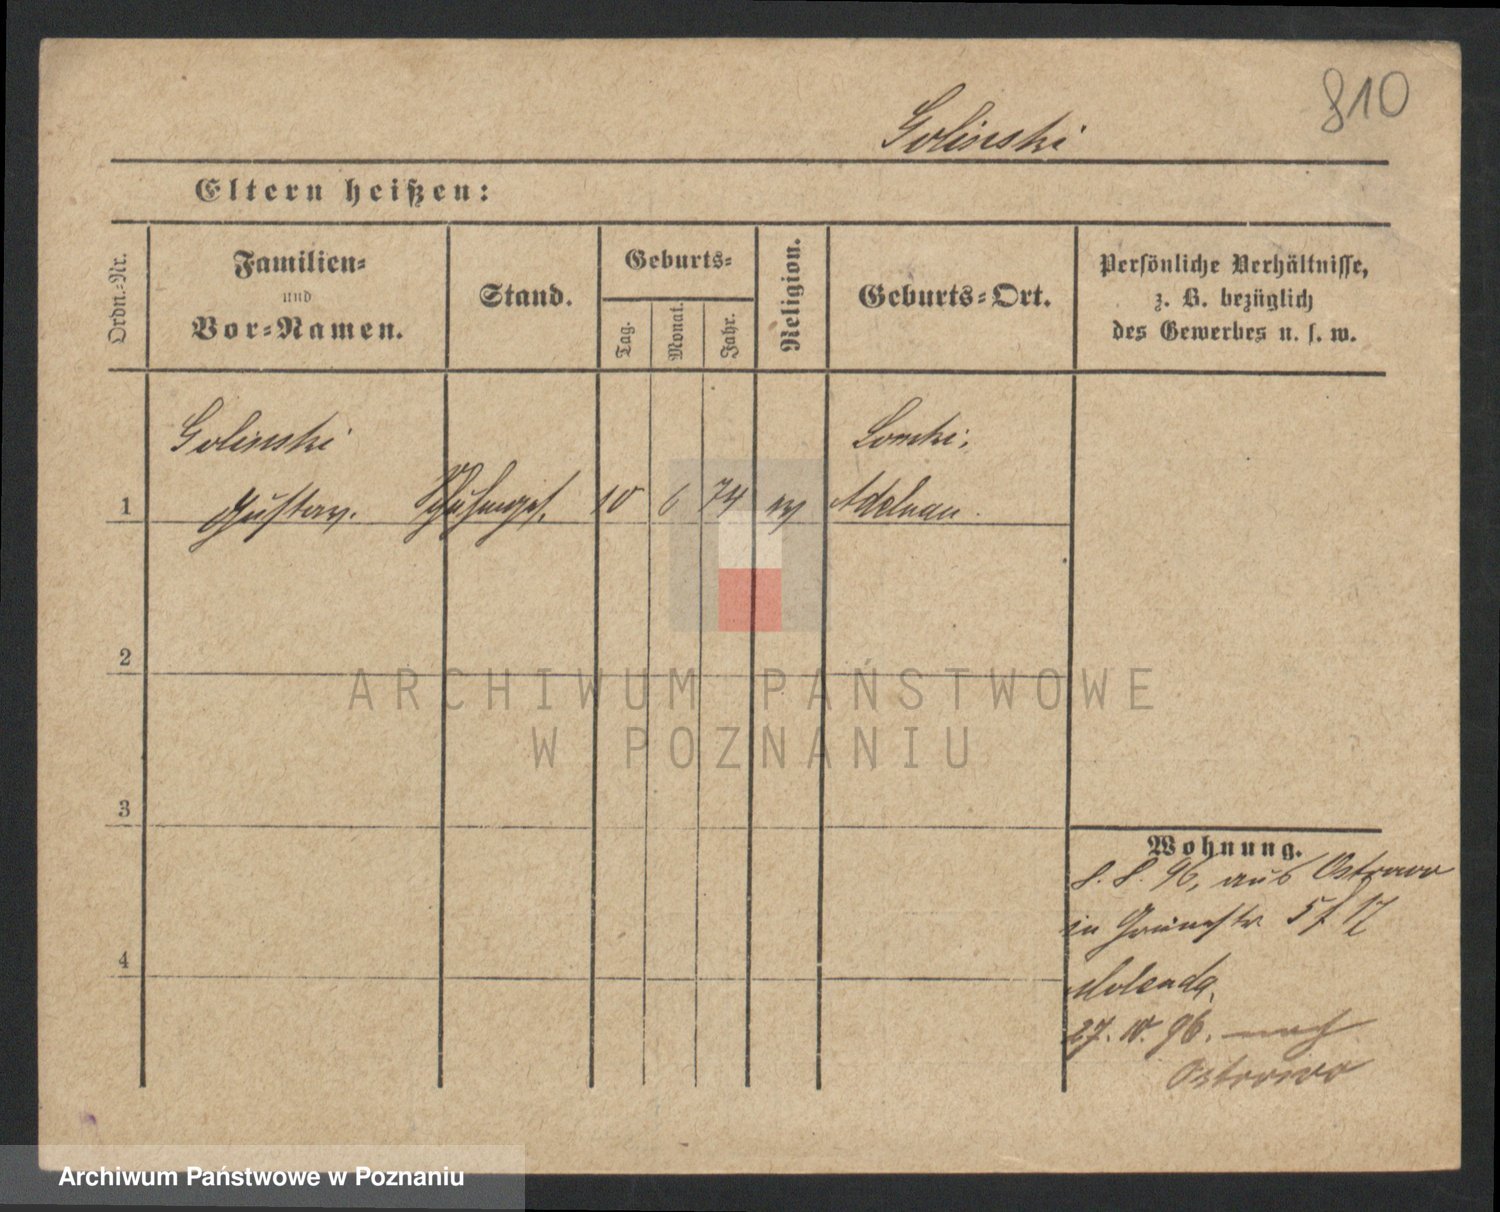 810
Golinski
Eltern heißen:
Ordn.-Nr.
Familien-
und
Vor-Namen.
Stand.
Geburts-
Tag.
Monat.
Jahr.
Religion.
Geburts-Ort.
Persönliche Verhältnisse,
z. B. bezüglich
des Gewerbes u. s. w.
Golinski
Gustav.
1
10 6 74 ev
Adelnau.
2
3
4
Wohnung.
8. 8. 96, aus Ostrowo
in Grünestr 5
Molenda,
27. 10. 96. nach
Ostrowo
ARCHIWUM PAŃSTWOWE
W POZNANIU
Archiwum Państwowe w Poznaniu